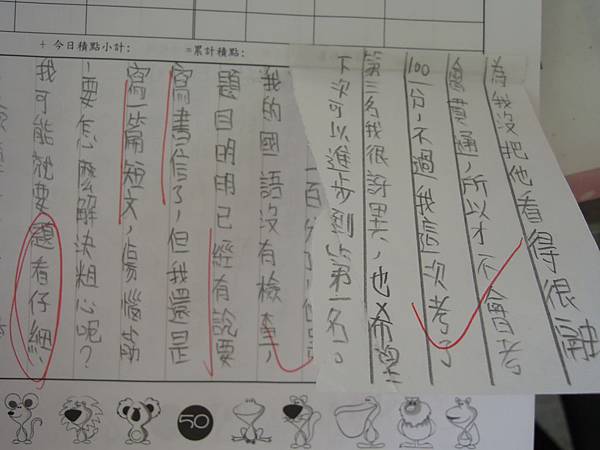 + 今日積點小計: =累計積點:
為我沒把他看得很融
會貫通,所以才不會考
100分,不過我這次考了
第三名我很訝異,也希望
下次可以進步到第一名。
一百分了,
我的國語沒有檢查,
題目明明已經有說要
寫書信了,但我還是
寫一篇短文,傷惱筋
,要怎麼解決粗心呢?
我可能就要題看仔細,
50